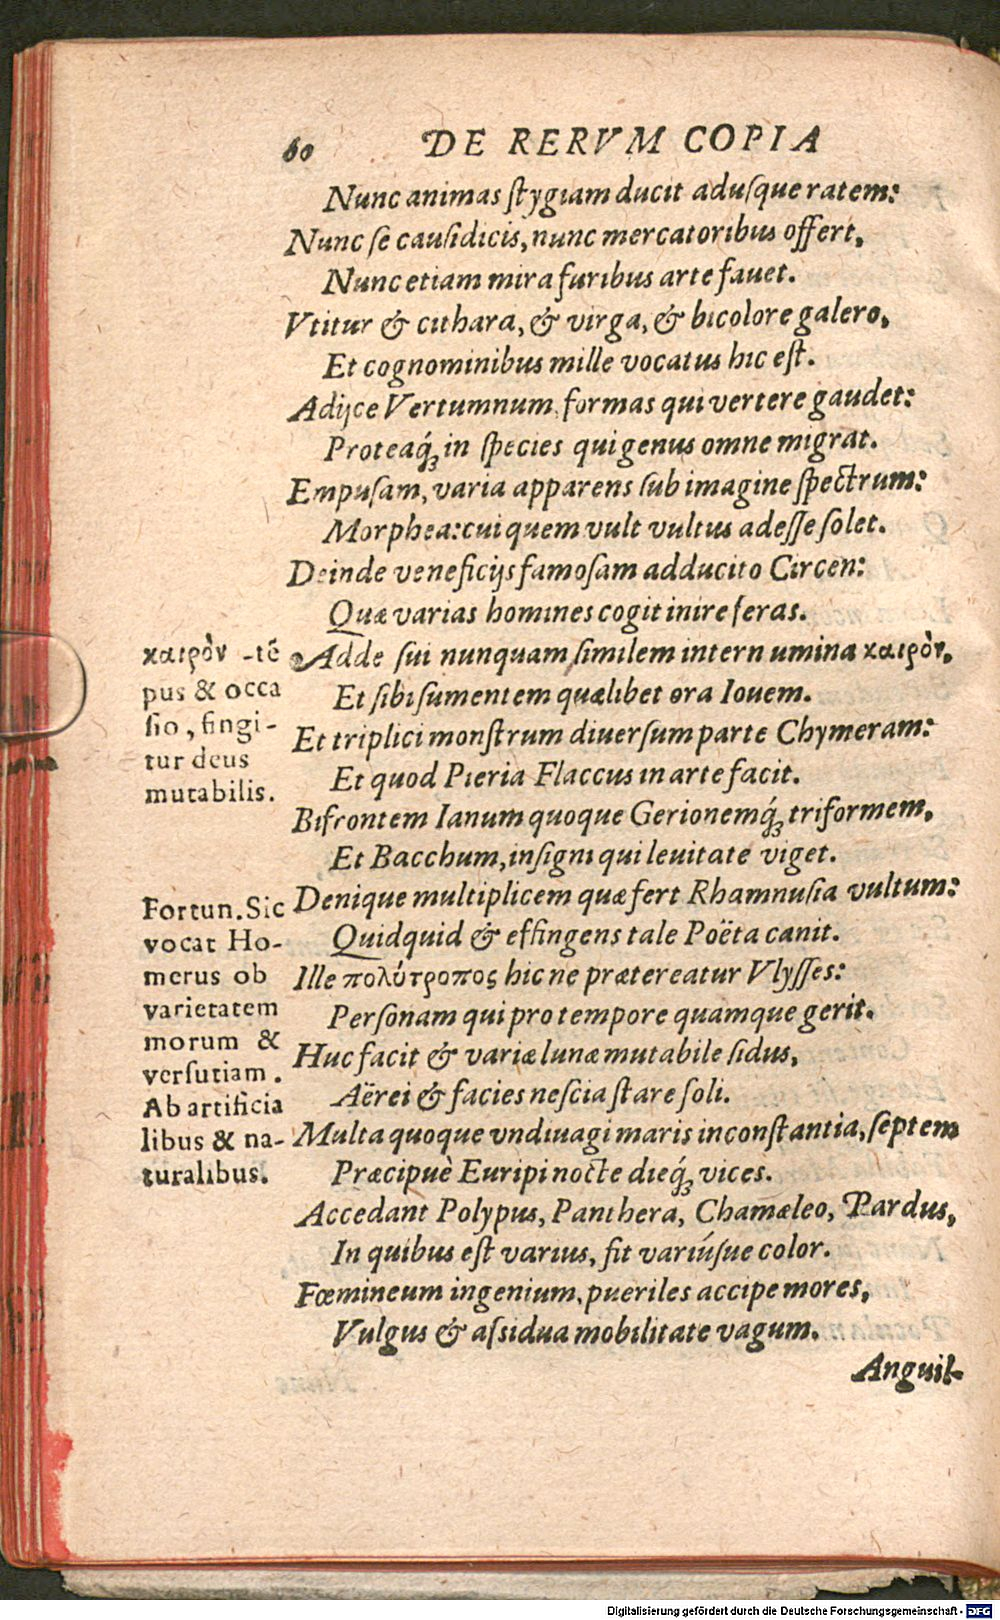 60 DE RERVM COPIA
Nunc animas ſtygiam ducit aduſque ratem:
Nunc ſe cauſidicis, nunc mercatoribus offert,
Nunc etiam mira furibus arte fauet.
Vtitur & cithara, & virga, & bicolore galero,
Et cognominibus mille vocatus hic eſt.
Adijce Vertumnum, formas qui vertere gaudet:
Proteaq́; in ſpecies qui genus omne migrat.
Empuſam, varia apparens ſub imagine ſpectrum:
Morphea: cui quem vult vultus adeſſe ſolet.
Deinde veneficijs famoſam adducito Circen:
Quæ varias homines cogit inire feras.
Adde ſui nunquam ſimilem inter numina καιρὸν,
Et ſibi ſumentem quælibet ora Iouem.
Et triplici monſtrum diuerſum parte Chymeram:
Et quod Pieria Flaccus in arte facit.
Bifrontem Ianum quoque Gerionemq́; triformem,
Et Bacchum, inſigni qui leuitate viget.
Denique multiplicem quæ fert Rhamnuſia vultum:
Quidquid & effingens tale Poëta canit.
Ille πολύτροπος hic ne prætereatur Vlyſſes:
Perſonam qui pro tempore quamque gerit.
Huc facit & variæ lunæ mutabile ſidus,
Aërei & facies neſcia ſtare ſoli.
Multa quoque vndiuagi maris inconſtantia, ſeptem
Præcipuè Euripi nocte dieq́; vices.
Accedant Polypus, Panthera, Chamæleo, Pardus,
In quibus eſt varius, fit variúſue color.
Fœmineum ingenium, pueriles accipe mores,
Vulgus & aſsidua mobilitate vagum.
Anguil-
καιρὸν -tē
pus & occa
ſio, fingi-
tur deus
mutabilis.
Fortun. Sic
vocat Ho-
merus ob
varietatem
morum &
verſutiam.
Ab artificia
libus & na-
turalibus.
Digitalisierung gefördert durch die Deutsche Forschungsgemeinschaft - DFG